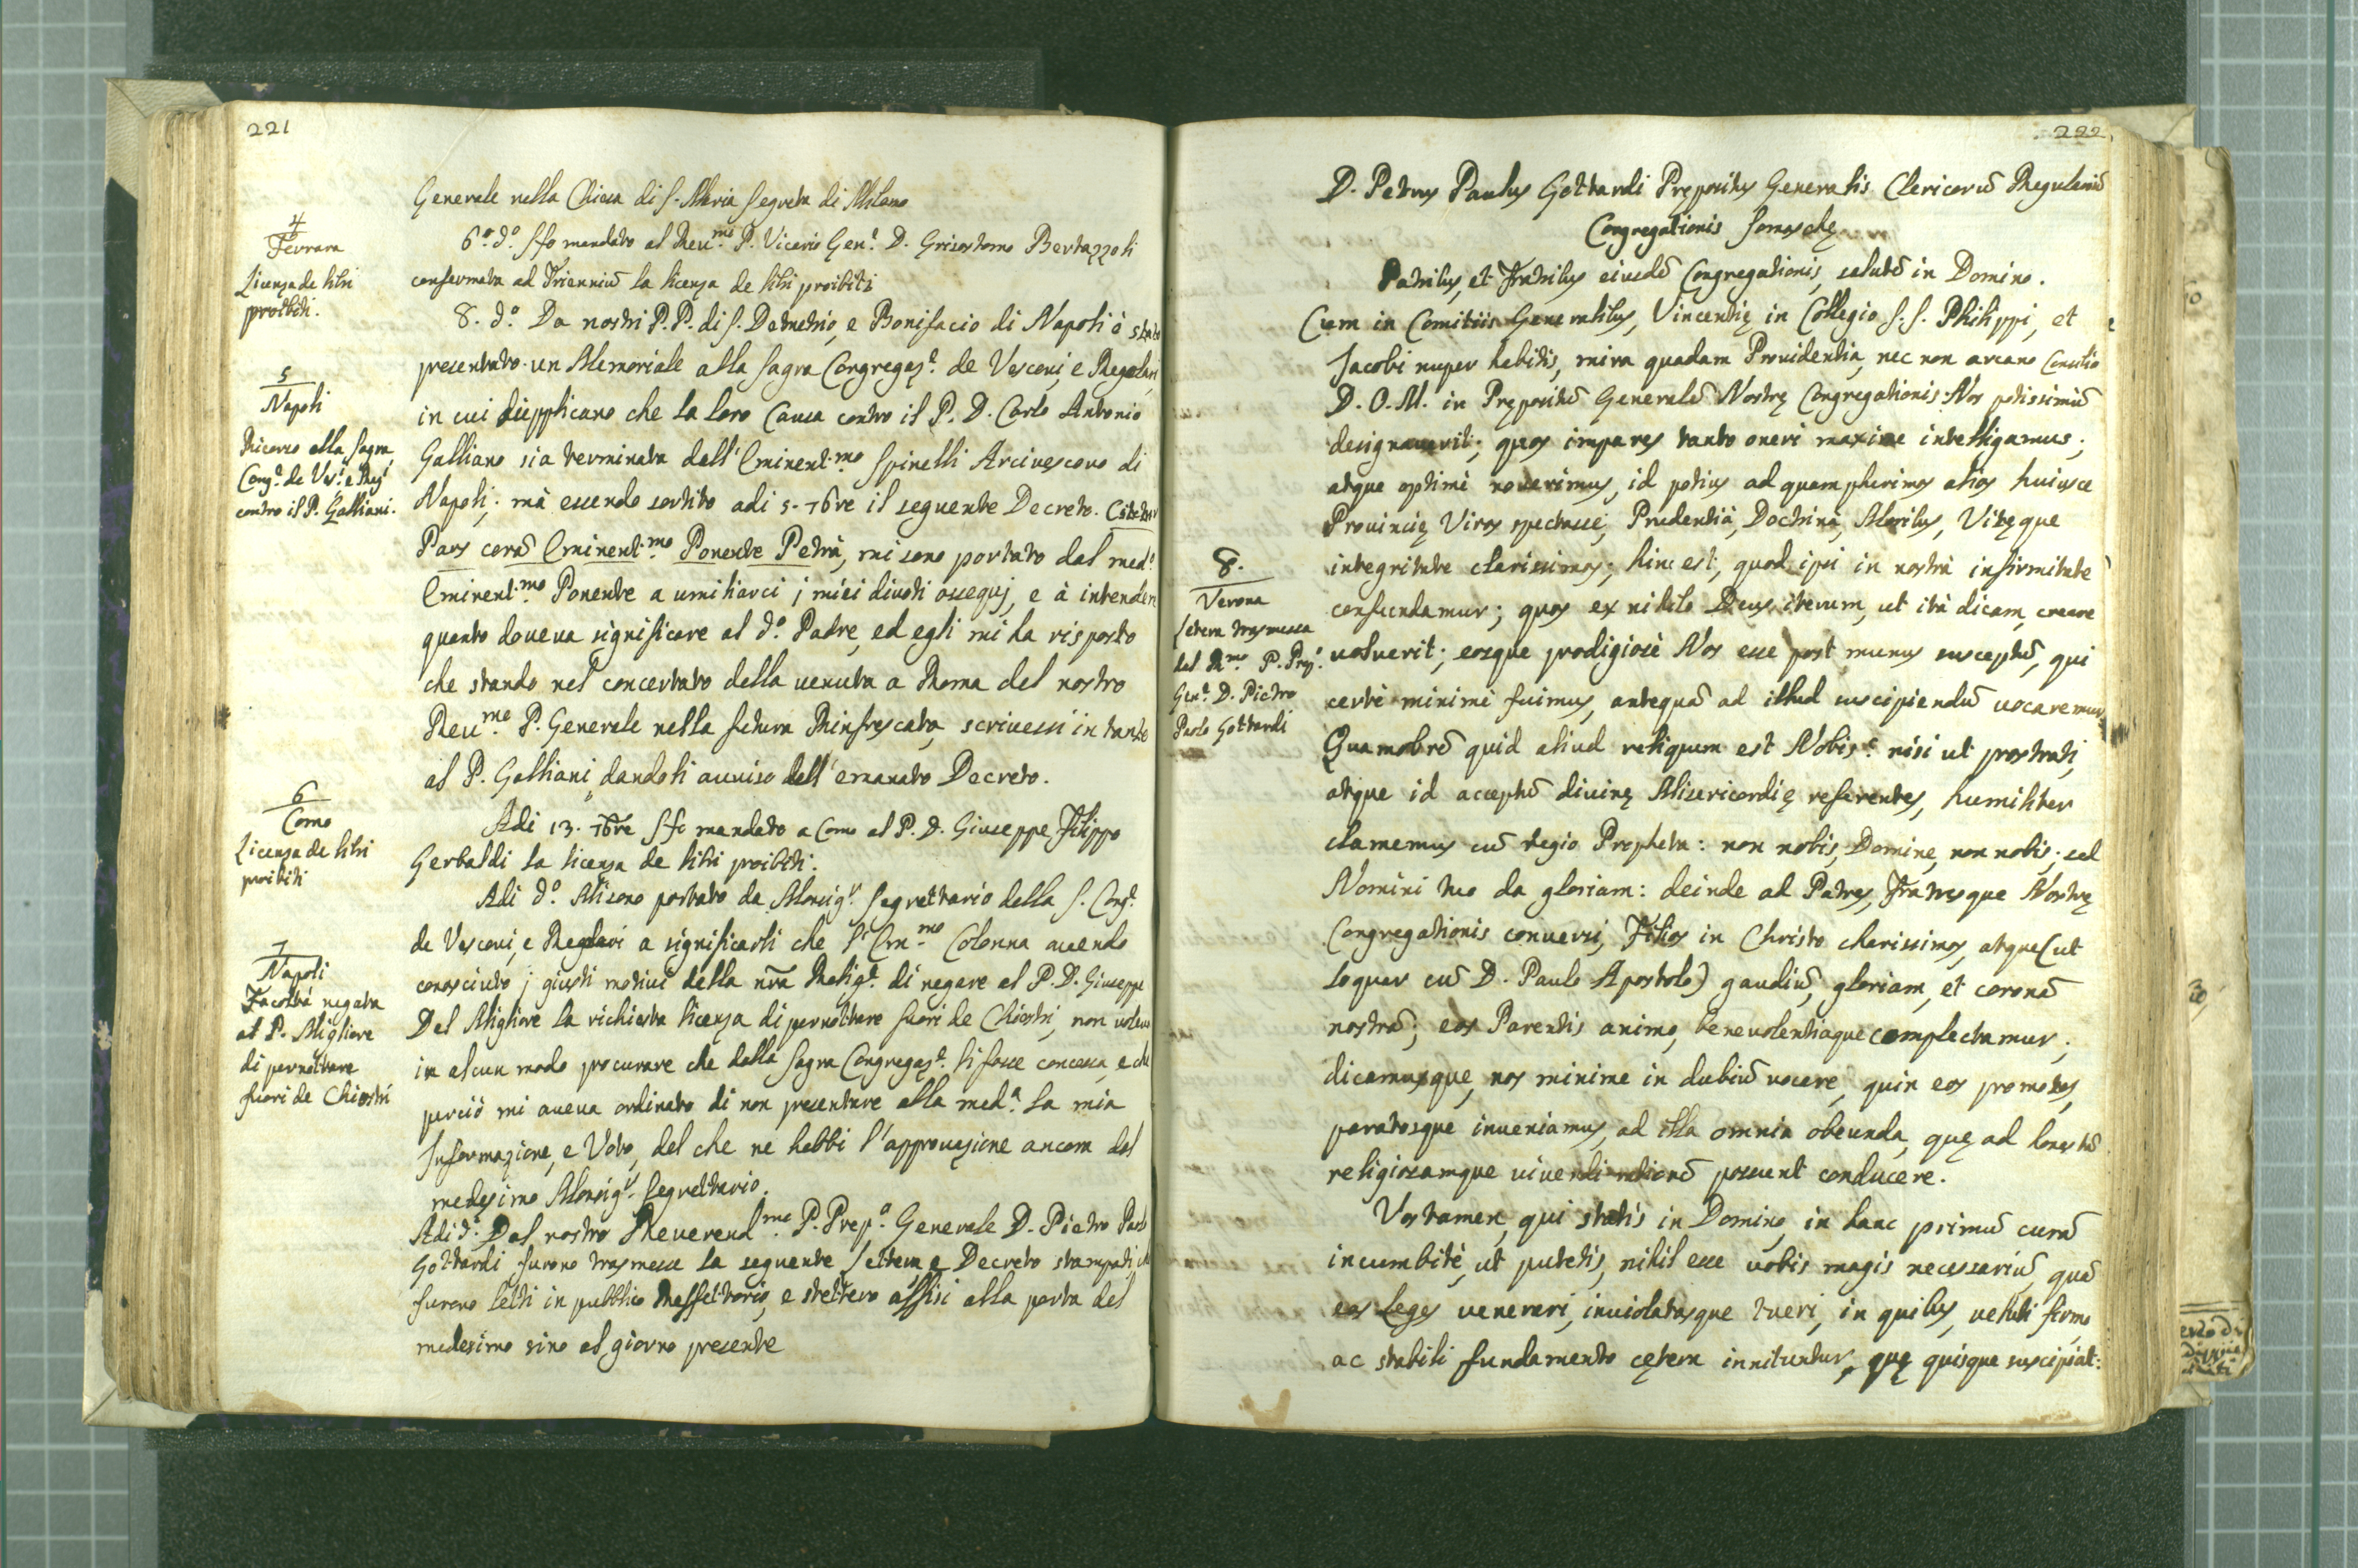 221
Generale nella Chiesa di S. Maria Segreta di Milano
4
Ferrara
Licenza de libri
proibiti.
6.º d.º S fo mandato al Reu.mo P. Vicario Gen.e D. Grisostomo Bertazzoli
confermata ad Trienniū la licenza de libri proibiti
5
Napoli
Ricorso alla Sagra
Cong.e de Ves.i e Reg.i
contro il P. Galliani.
8. d.º Da nostri P.P. di S. Demetrio, e Bonifacio di Napoli è stato
presentato un Memoriale alla Sagra Congregaz.e de Vescoui, e Regolari
in cui supplicano che la loro Causa contro il P. D. Carlo Antonio
Galliano sia terminata dall'Eminent.mo Spinelli Arciuescouo di
Napoli; mà essendo sortito adi 5. 7bre il seguente Decreto. Citetur
Pars corā Eminent.mo Ponente Petrà, mi sono portato dal med.º
Eminent.mo Ponente a umiliarci j miei diuoti ossequj, e à intendere
quanto doueua significare al d.º Padre, ed egli mi ha risposto
che stando nel concertato della uenuta a Roma del nostro
Reu.mo P. Generale nella futura Rinfrescata, scriuessi in tanto
al P. Galliani, dandoli auuiso dell'emanato Decreto.
6
Como
Licenza de libri
proibiti
Adi 13. 7bre S fo mandato a Como al P. D. Giuseppe Filippo
Gerbaldi la licenza de libri proibiti.
7
Napoli
Facoltà negata
al P. Migliore
di pernottare
fuori de Chiostri
Adi d.º Mi sono portato da Monsig.r Segrettario della S. Cong.e
de Vescoui, e Reglari a significarli che l'Em.mo Colonna auendo
conosciuto j giusti motiui della nrā Relig.e di negare al P. D. Giuseppe
Del Migliore la richiesta licenza di pernottare fuori de Chiostri, non uoleua
in alcun modo procurare che dalla Sagra Congregaz.e li fosse concessa, e che
perciò mi aueua ordinato di non presentare alla med.a la mia
Informazione, e Voto, del che ne hebbi l'approuazione ancora dal
medesimo Monsig.r Segrettario.
Adi d.º Dal nostro Reuerend.mo P. Prep.o Generale D. Pietro Paolo
Gottardi furono trasmesse la seguente lettera e Decreto stampati, che
furono letti in pubblico Reffettorio, e stettero affisi alla porta del
medesimo sino al giorno presente
222
D. Petrus Paulus Gottardi Prępositus Generalis Clericorū Regulariū
Congregationis Somaschę
Patribus, et Fratribus eiusdē Congregationis, salutē in Domino.
Cum in Comitiis Generalibus, Vincentię in Collegio S.S. Philippi, et
Jacobi nuper habitis, mira quadam Prouidentia, nec non arcano Consilio
D. O. M. in Prępositū Generalē Nostrę Congregationis Nos potissimū
designauerit; quos impares tanto oneri maxime intelligamus;
atque optimè nouerimus, id potius ad quam plurimos alios huiusce
Prouincię Viros spectasse, Prudentià, Doctrinà, Moribus, Vitęque
integritate clarissimos; hinc est, quod ipsi in nostrà infirmitate
8.
Verona
Lettera trasmessa
dal R.mo P. Prep.o
Gen.e D. Pietro
Paolo Gottardi
confundamur; quos ex nihilo Deus iterum, ut ità dicam, creare
uoluerit; eosque prodigiosè Nos esse post munus susceptū, qui
certè minimè fuimus, antequā ad illud suscipiendū uocaremur.
Quamobrē quid aliud reliquum est Nobis? nisi ut prostrati,
atque id acceptū diuinę Misericordię referentes, humiliter
clamemus cū regio Propheta: non nobis, Domine, non nobis; sed
Nomini tuo da gloriam: deinde ad Patres, Fratresque Nostrę
Congregationis conuersi, Filios in Christo charissimos, atque (ut
loquar cū D. Paulo Apostolo) gaudiū, gloriam, et coronā
nostrā; eos Parentis animo, beneuolentiaque complectamur;
dicamusque, nos minime in dubiū uocare, quin eos promotos,
paratosque inueniamus, ad illa omnia obeunda, quę ad honestā
religiosamque uiuendi rationē possunt conducere.
Vos tamen, qui statis in Domino, in hanc primū curā
incumbite, ut putetis, nihil esse uobis magis necessariū, quā
eas leges uenerari, inuiolatasque tueri, in quibus, ueluti firmo
ac stabili fundamento cętera innituntur, quę quisque suscipiat: